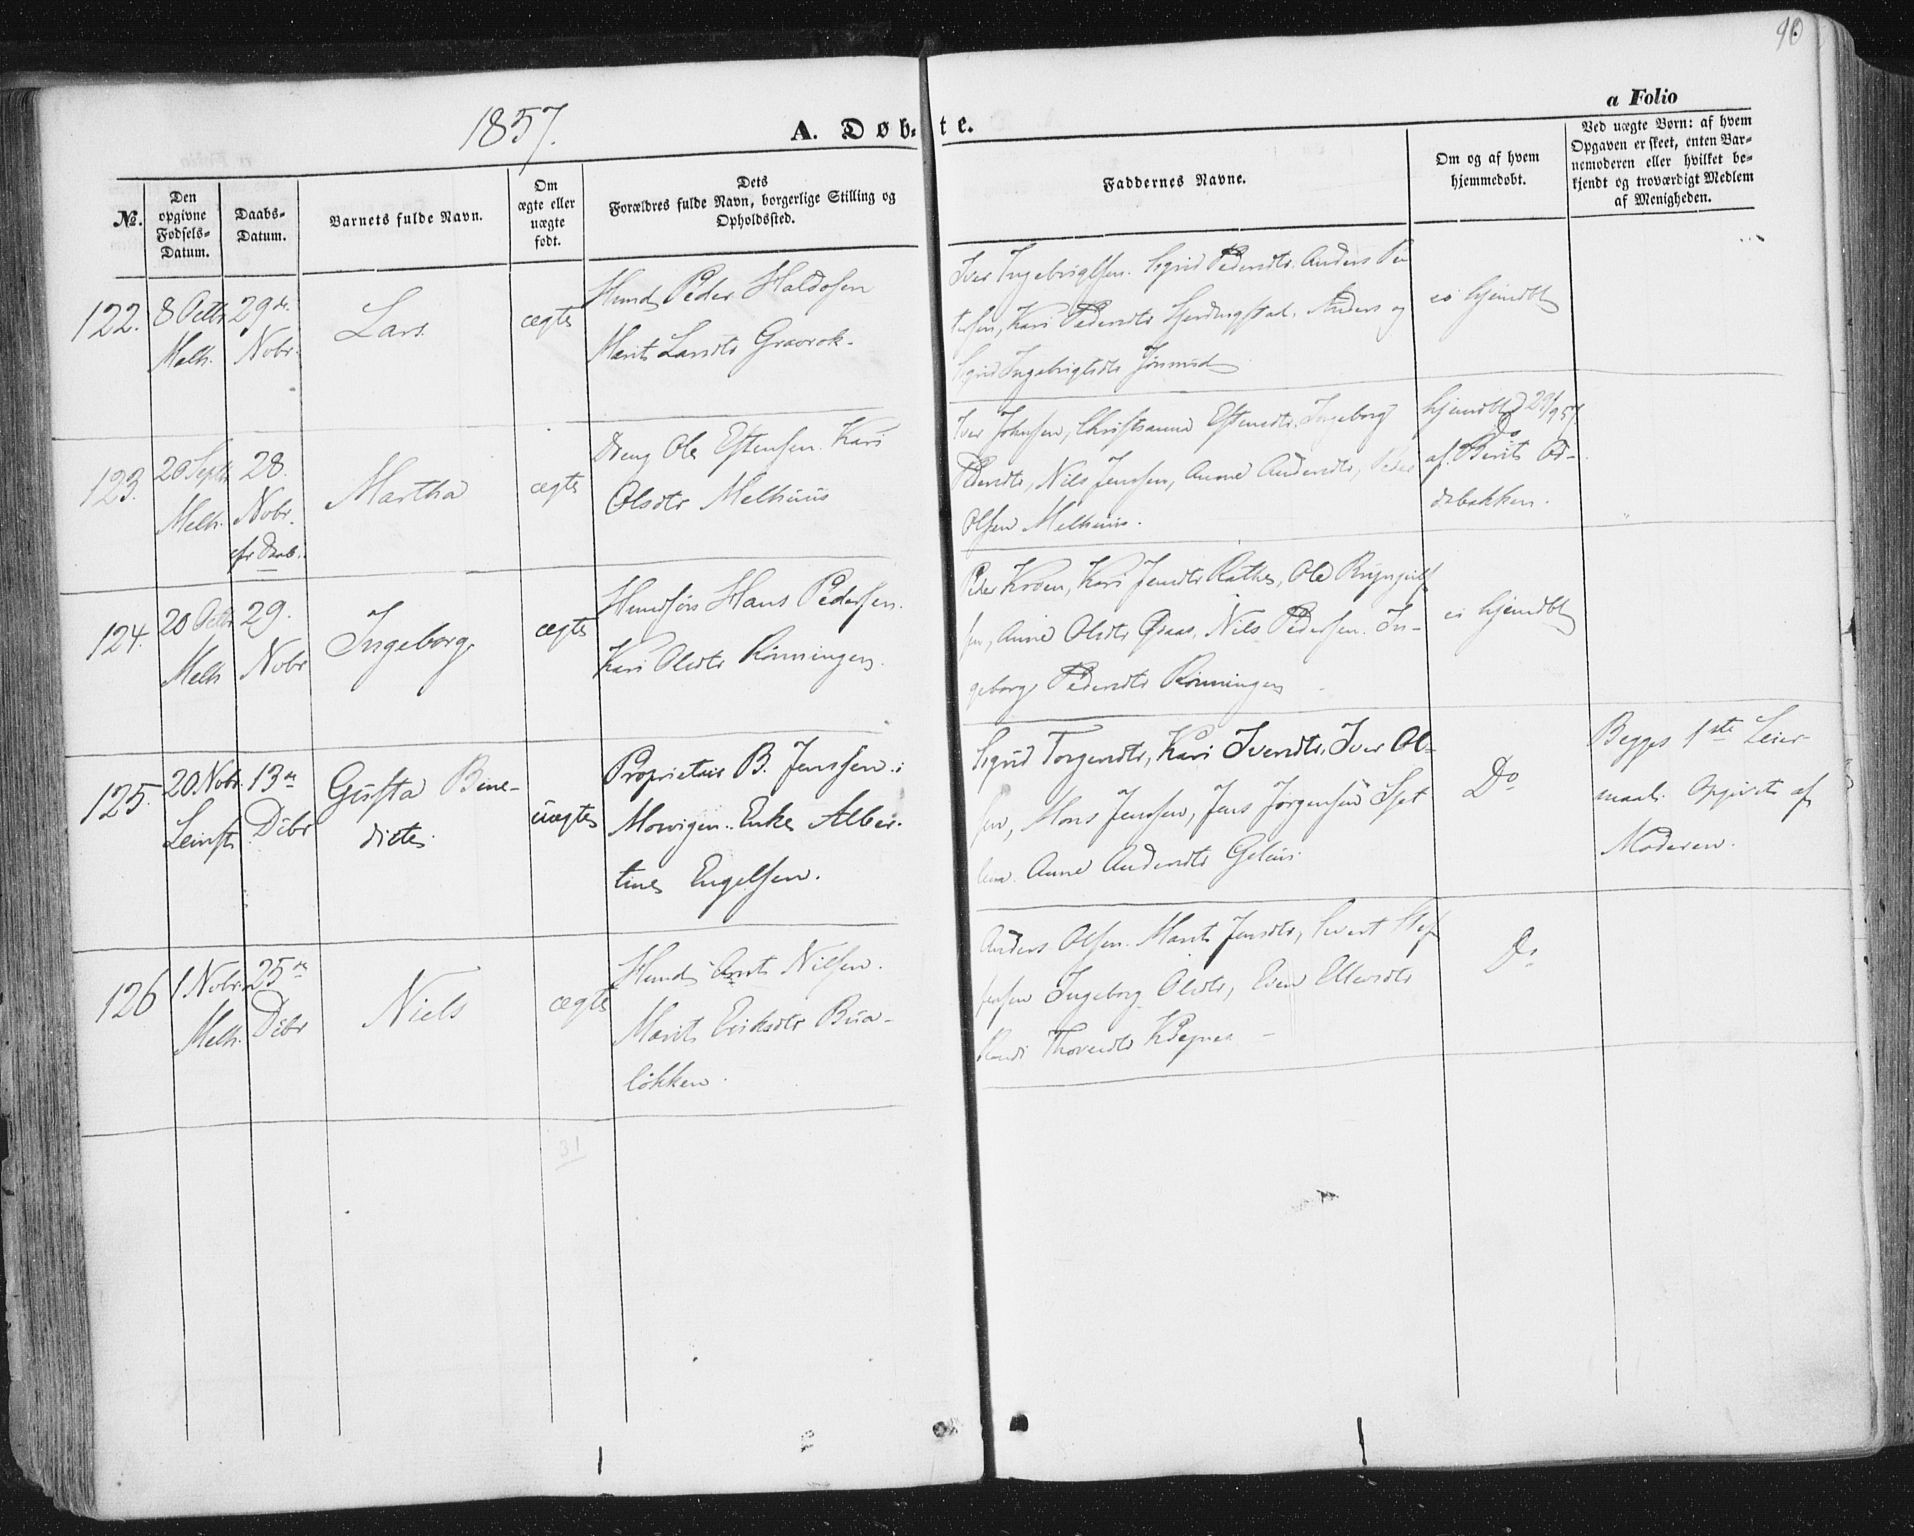 90
1857.
A. Døb-
te.
a Folio
No.
Den opgivne Fødsels-Datum.
Daabs-Datum.
Barnets fulde Navn.
Om ægte eller uægte født.
Dets Forældres fulde Navn, borgerlige Stilling og Opholdssted.
Faddernes Navne.
Om og af hvem hjemmedøbt.
Ved uægte Børn: af hvem Opgaven er skeet, enten Barnemoderen eller hvilket bekjendt og troværdigt Medlem af Menigheden.
122.
8 Octbr
Melh.
29de
Nobr.
Lars
ægte
Huusm Peder Haldosen
Marit Larsdtr Gravrok.
Iver Ingebrigtsen. Sigrid Pedersdtr. Anders Pe-
tersen, Kari Pedersdtr Anders og
Sigrid Ingebrigtsdtr
ei hjemdbt
123.
20 Septbr
Melh.
28.
Nobr.
Martha
ægte
Dreng Ole Estensen Kari
Olsdtr Melhuus
Iver Johnsen, Christianna Estensdtr. Ingeborg
Pedersdtr, Nils Jensen, Anne Andersdtr, Peder
Olsen Melhuus.
hjemdbt 29/9 57
af Berit Od-
debakken.
124.
20 Octbr
Melh
29.
Nobr
Ingeborg
ægte
Hans Pedersen.
Kari Olsdtr Rönningen.
Peder Kroen, Kari Jensdtr Ole Bryngulf
sen, Anne Olsdtr Nils Pedersen. In-
geborg Pedersdtr Rönningen
ei hjemdbt
125.
20 Nobr.
Leinst.
13de
Decbr
Gusta Bene-
dicte
uægte
Proprietair B. Jenssen i
Enke Alber-
tine Engelsen.
Sigrid Torgersdtr, Kari Iversdtr. Iver Ol-
sen, Mons Jenssen, Jens Jørgensen
Anne Andersdtr
Do
Begges 1ste Leier-
maal. Opgivet af
Moderen.
126
1 Nobr.
Melh.
25de
Decbr
Niels
ægte
Huusm Arnt Nielsen.
Marit Eriksdtr Bua-
løkken.
Anders Olsen. Marit Jensdtr, Sivert Stef-
fensen Ingeborg Olsdtr, Even Ellevsdtr
Do
31